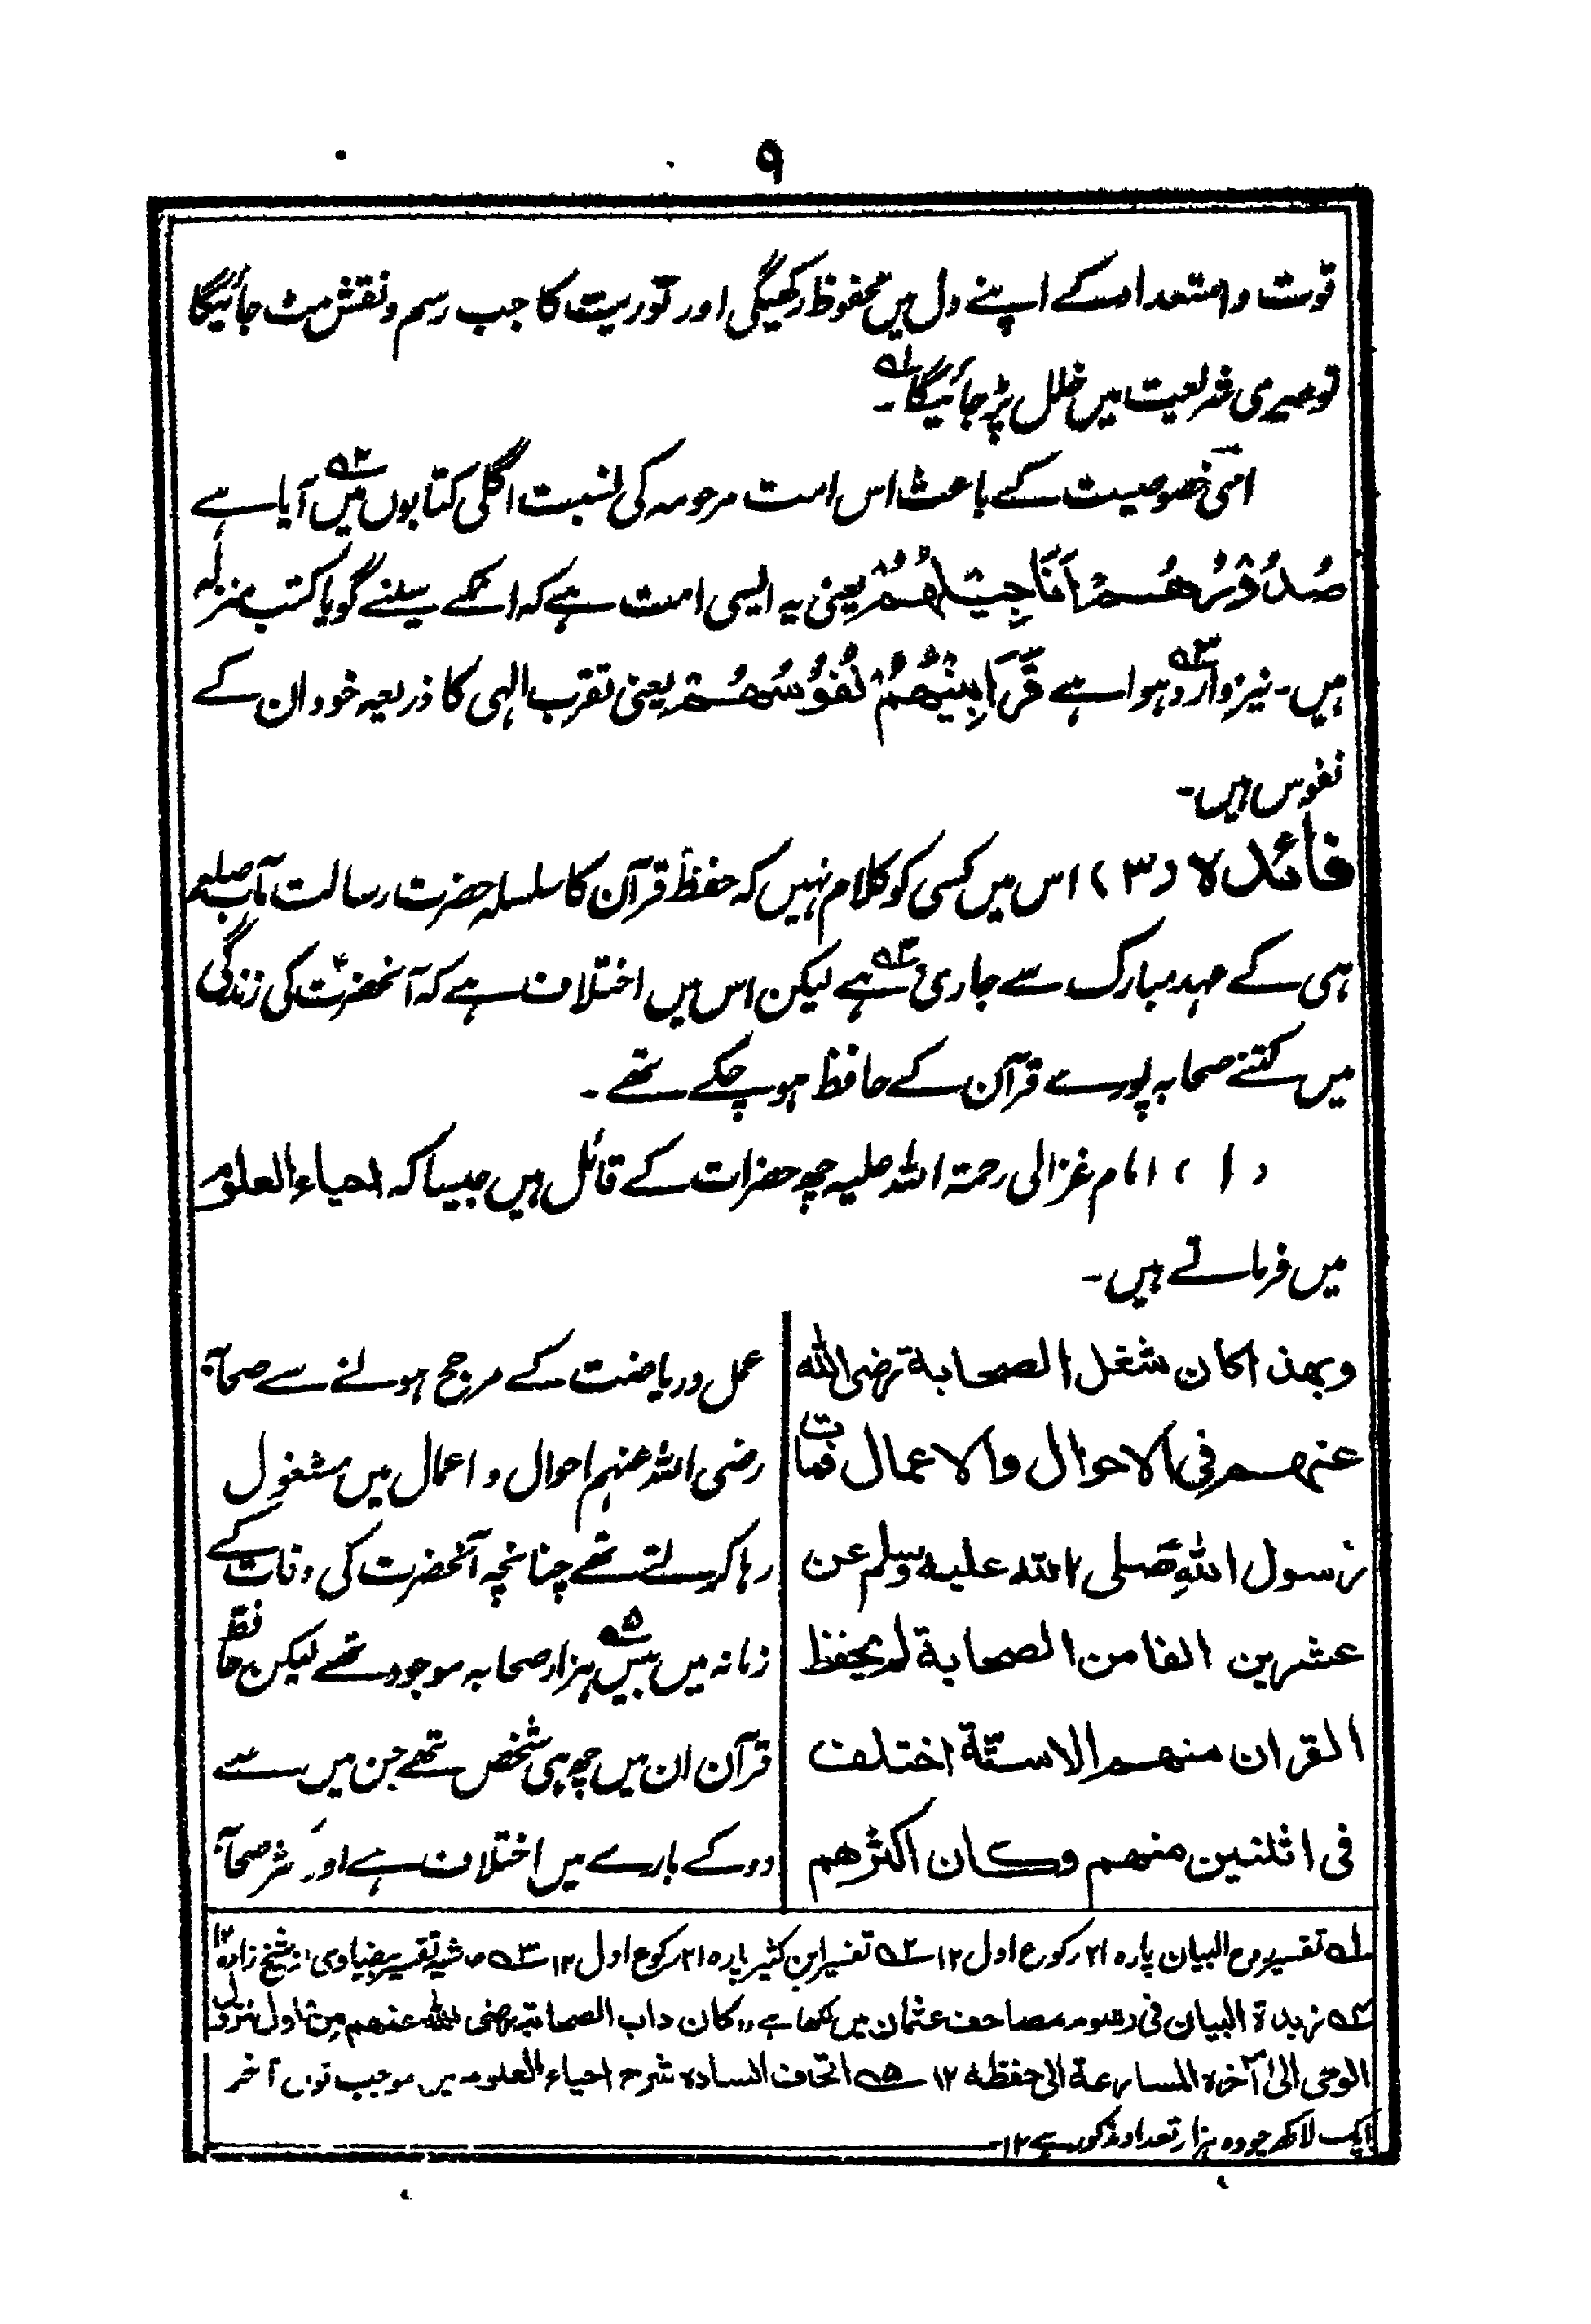 ۹
قوت واستعداد کے اپنے دل میں محفوظ رکھیگی اور توریت کا جب رسم ونقش مٹ جائیگا
تو میری شریعت میں خلل پڑ جائیگا۱؎۔
اسی خصوصیت کے باعث اس امت مرحومہ کی نسبت اگلی کتابوں۲؎ میں آیا ہے
صُدُوْرُهُمْ اَنَاجِیْلُهُمْ یعنی یہ ایسی امت ہے کہ انکے سینے گویا کتب منزلہ
ہیں۔ نیز وارد۳؎ ہوا ہے قَرَابِیْنُهُمْ نُفُوْسُهُمْ یعنی تقرب الہی کا ذریعہ خود ان کے
نفوس ہیں۔
فائدہ (۳) اس میں کسی کو کلام نہیں کہ حفظ قرآن کا سلسلہ حضرت رسالت مآب صلعم
ہی کے عہد مبارک سے جاری۴؎ ہے لیکن اس میں اختلاف ہے کہ آنحضرتؐ کی زندگی
میں کتنے صحابہ پورے قرآن کے حافظ ہو چکے تھے۔
(۱) امام غزالی رحمۃ اللہ علیہ چھ حضرات کے قائل ہیں جیسا کہ احیاء العلوم
میں فرماتے ہیں۔
وبهذا كان شغل الصحابة رضی الله
عنهم فی الاحوال والاعمال فمات
رسول اللهِ صَلی الله علیه وسلم عن
عشرین الفا من الصحابة لم یحفظ
القران منهم الا ستّة اختلف
فی اثنین منهم وكان اكثرهم
عمل وریاضت کے مرجح ہونے سے صحابہ
رضی اللہ عنہم احوال و اعمال میں مشغول
رہا کرتے تھے چنانچہ آنحضرت کی وفات کے
زمانہ میں بیس۵؎ ہزار صحابہ موجود تھے لیکن حافظ
قرآن ان میں چھ ہی شخص تھے جن میں سے
دو کے بارے میں اختلاف ہے اور اکثر صحابہ
۱؎ تفسیر روح البیان پارہ ۲۱ رکوع اول ۱۲ ۲؎ تفسیر ابن کثیر پارہ ۲۱ رکوع اول ۱۲ ۳؎ حاشیہ تفسیر بیضاوی از شیخ زادہ ۱۲
۴؎ زبدة البیان فی رسوم مصاحف عثمان میں لکھا ہے وکان داب الصحابة رضی الله عنهم من اول نزول
الوحی الی آخره المسارعة الی حفظه ۱۲ ۵؎ اتحاف السادہ شرح احیاء العلوم میں موجب قول آخر
ایک لاکھ چودہ ہزار تعداد مذکور ہے ۱۲۔